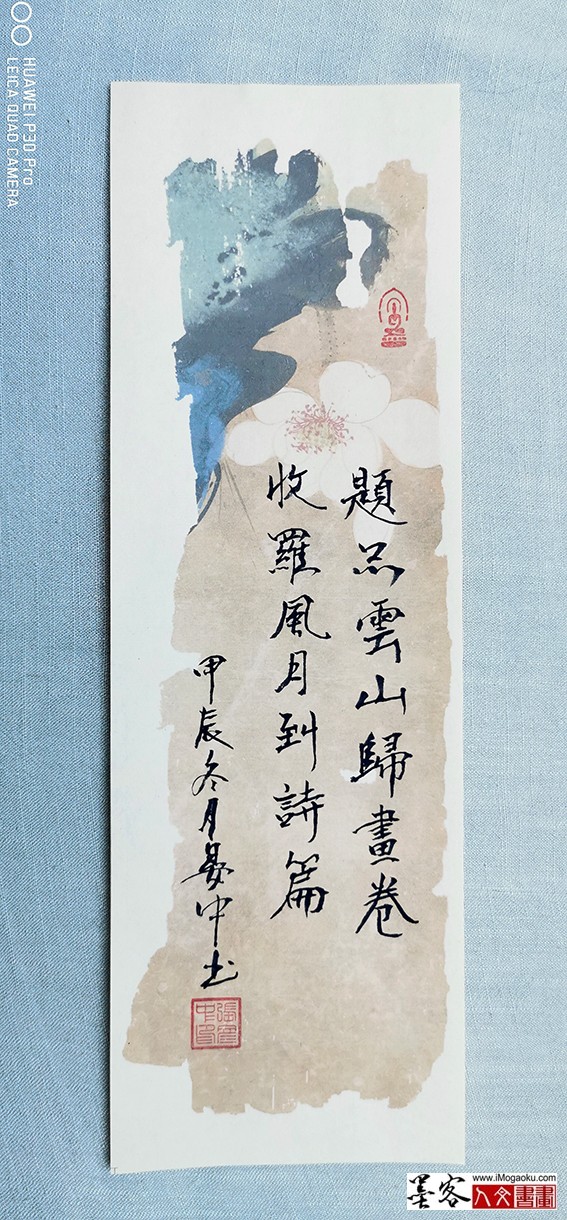 題品雲山歸畫卷
收羅風月到詩篇
甲辰冬月晏中书
HUAWEI P30 Pro
LEICA QUAD CAMERA
墨客
www.iMogaoku.com
人文書畫